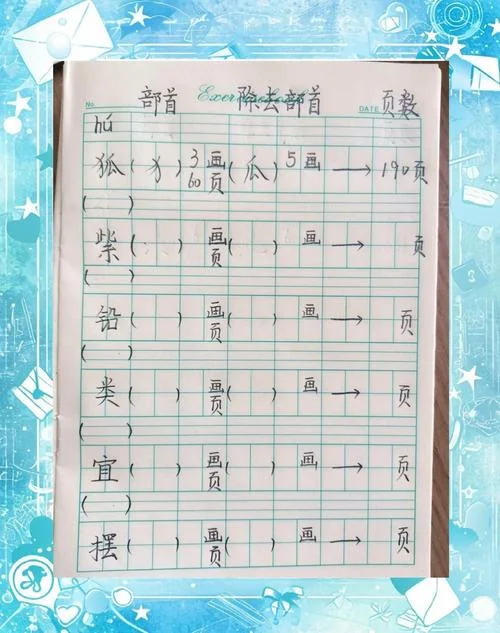 部首 除去部首 页数
No. Exercise book DATE
hú
狐(犭)3画(瓜)5画→190页
60页
( )
紫( )画( )画→页
页
( )
铅( )画( )画→页
页
( )
类( )画( )画→页
页
( )
宜( )画( )画→页
页
( )
摆( )画( )画→页
页